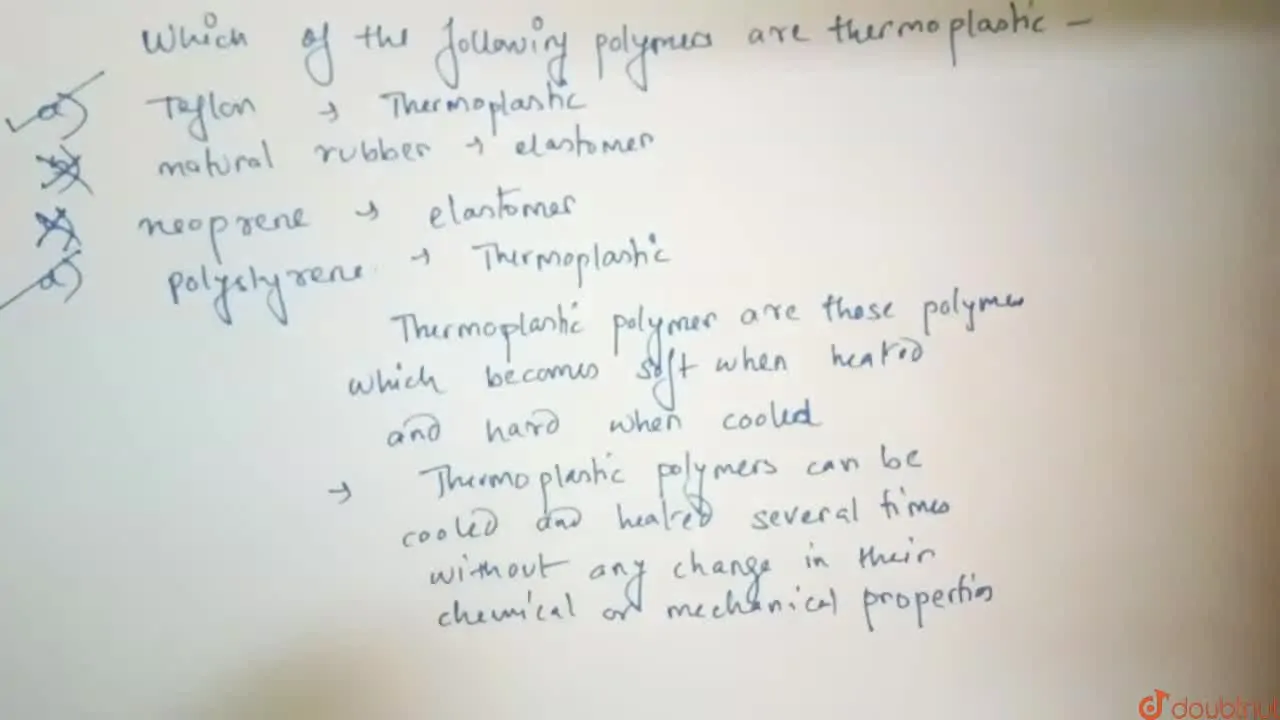 Which of the following polymers are thermoplastic -
a) Teflon → Thermoplastic
natural rubber → elastomer
neoprene → elastomer
d) polystyrene → Thermoplastic
Thermoplastic polymer are those polymer
which becomes soft when heated
and hard when cooled
→ Thermoplastic polymers can be
cooled and heated several times
without any change in their
chemical or mechanical properties
doubtnut